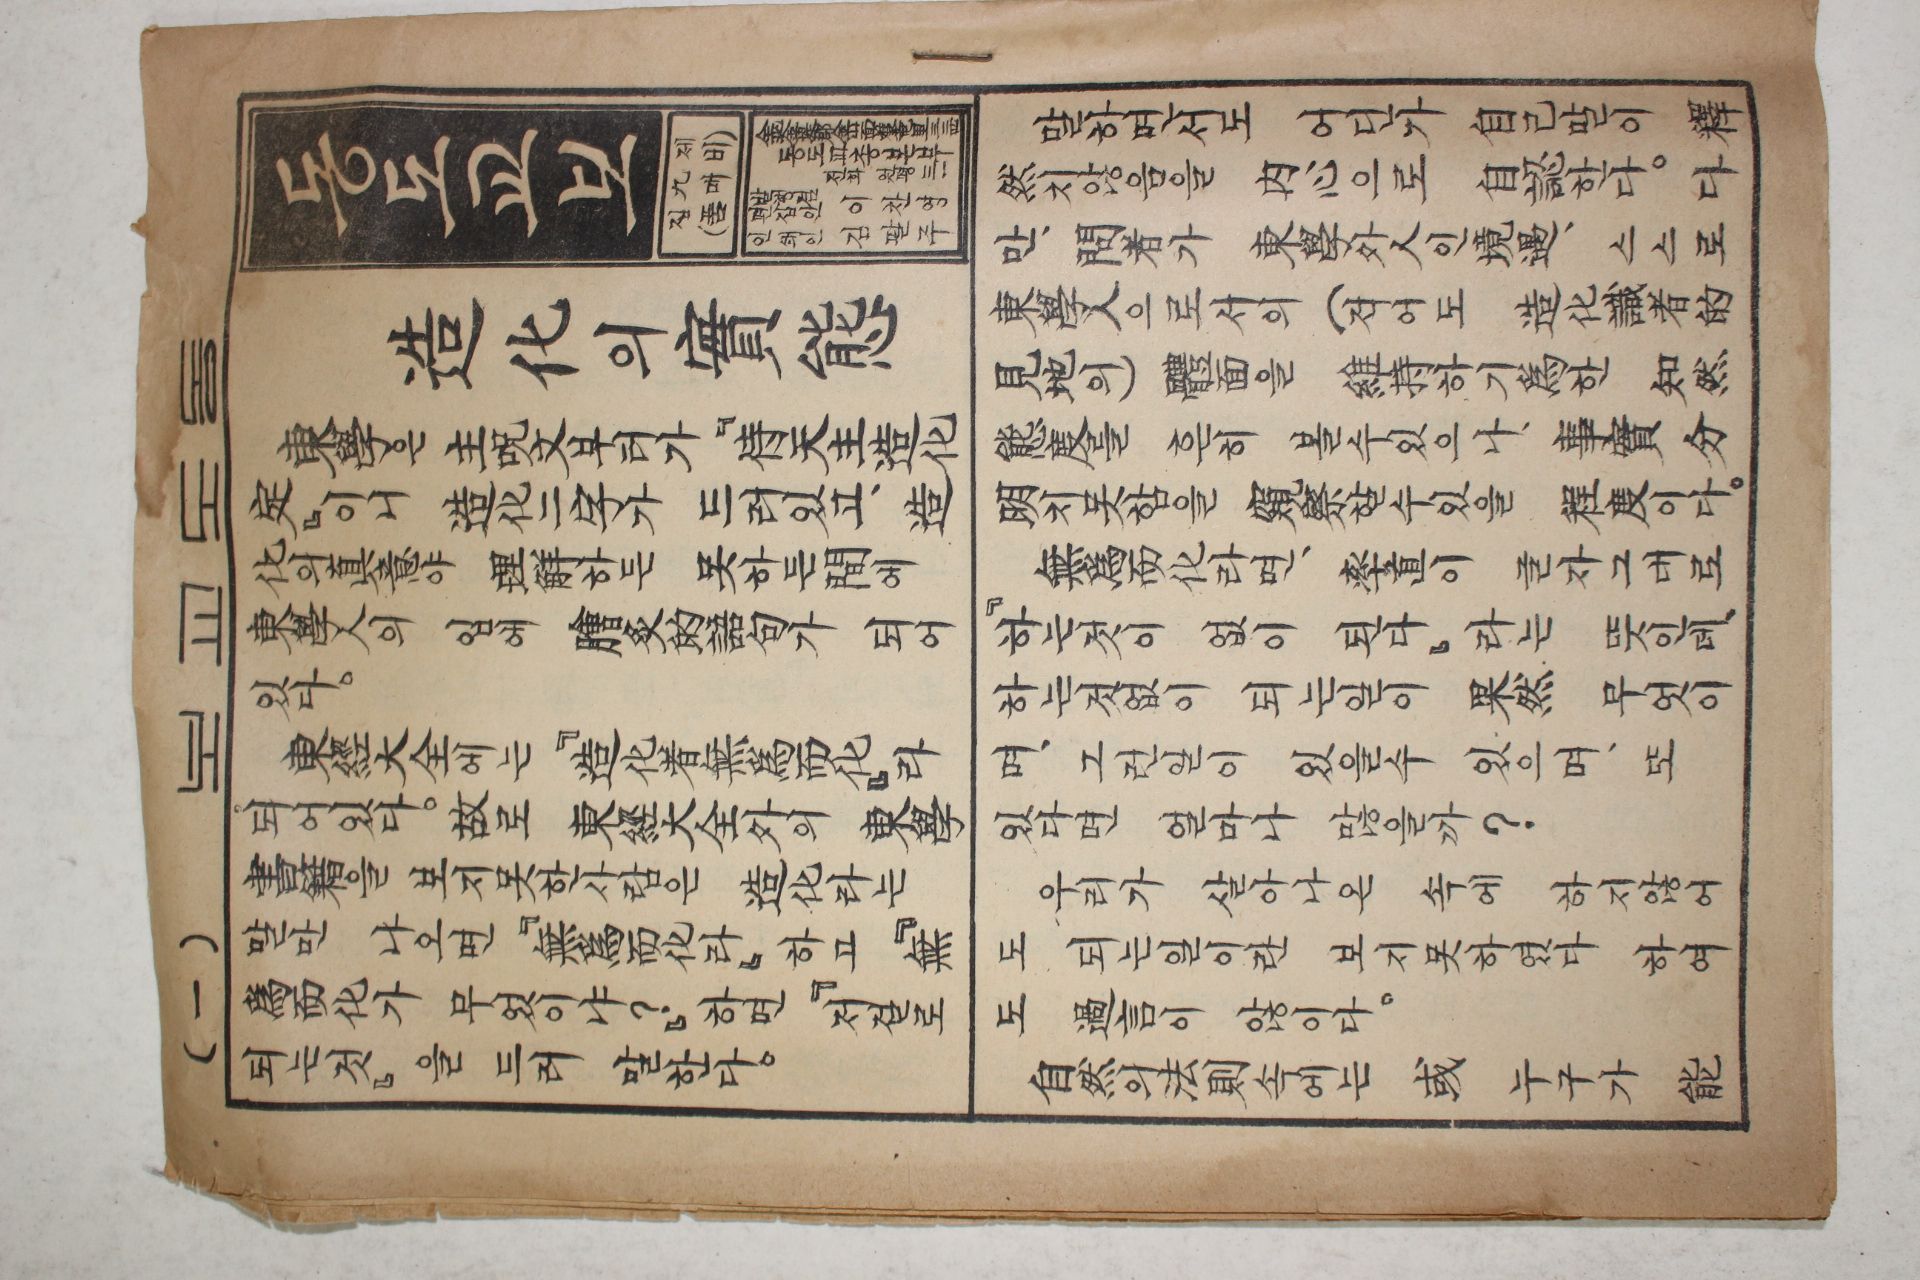 동도교보 (一)
동도교보
제九집
(비매품)
동도교총본부
이찬영
인쇄인 김판주
造化의實態
東學은 主呪文부터가『侍天主造化
定』이니 造化二字가 드러있고、造
化의眞意야 理解하든 못하든間에
東學人의 입에 膾炙的語句가 되어
있다。
東經大全에는『造化者無爲而化』라
되어있다。故로 東經大全外의 東學
書籍을 보지못한사람은 造化라는
말만 나오면『無爲而化라』하고『無
爲而化가 무엇이냐?』하면『저절로
되는것』을 드러 말한다。
말하면서도 어딘가 自己말이 釋
然치않음을 內心으로 自認한다。다
만、問者가 東學外人인境遇、스스로
東學人으로서의(적어도 造化識者的
見地의)體面을 維持하기爲한 知然
態度를 흔히 볼수있으나、事實 分
明치못함을 觀察할수있을 程度이다。
無爲而化라면、率直이 글자그대로
『하는것이 없이 된다』라는 뜻인데、
하는것없이 되는일이 果然 무엇이
며、그런일이 있을수 있으며、또
있다면 얼마나 많을가?
우리가 살아나온 속에 하지않어
도 되는일이란 보지못하였다 하여
도 過言이 않이다。
自然의法則속에는 或 누구가 能